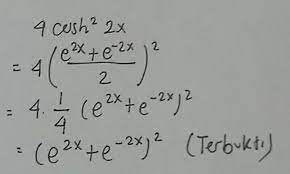 4 cosh² 2x
= 4 ( (e^{2x} + e^{-2x}) / 2 )²
= 4 · 1/4 (e^{2x} + e^{-2x})²
= (e^{2x} + e^{-2x})² (Terbukti)